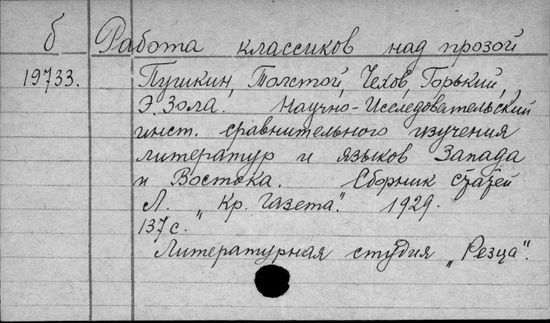 б Работа классиков над прозой
19733. Пушкин, Толстой, Чехов, Горький,
Э. Зола. Научно-Исследовательский
инст. сравнительного изучения
литератур и языков Запада
и Востока. Сборник статей
Л. „Кр. Газета". 1929.
137 с.
Литературная студия „Резца".